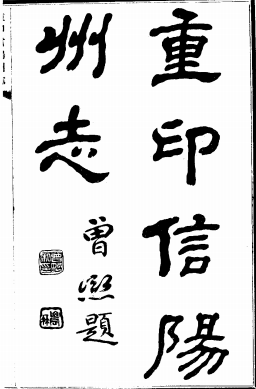 重印信陽
州志
曾熙題